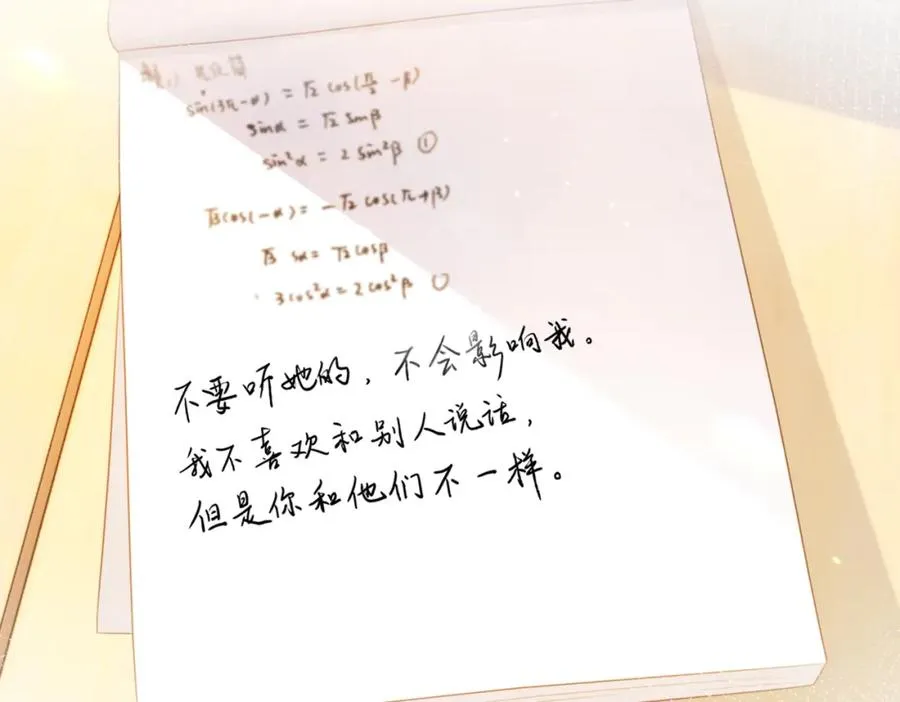 解：）先化简
sin(3π-α) = √2 cos(π/2 - β)
sinα = √2 sinβ
sin²α = 2 sin²β ①
√3cos(-α) = -√2 cos(π+β)
√3 sα = √2 cosβ
3cos²α = 2cos²β
不要听她的，不会影响我。
我不喜欢和别人说话，
但是你和他们不一样。